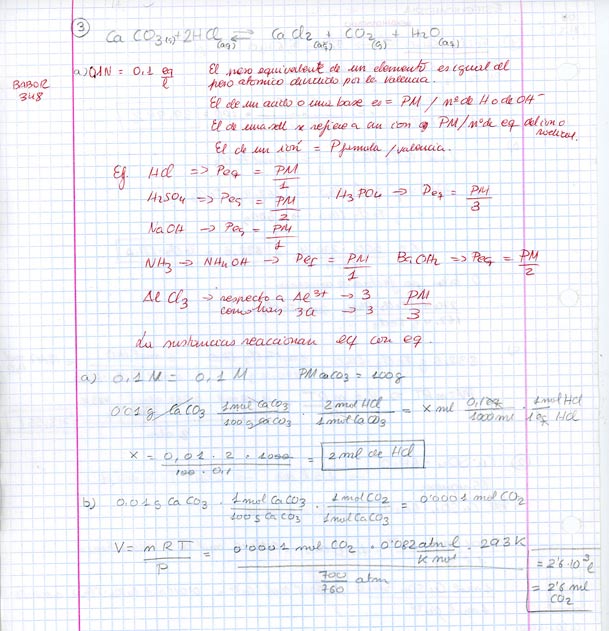 3
Ca CO3(s) + 2HCl(aq) ⇌ CaCl2(aq) + CO2(g) + H2O(aq)
BABOR
348
a) 0,1N = 0,1 eq/l
El peso equivalente de un elemento es igual del
peso atomico dividido por la valencia.
El de un acido o una base es = PM / nº de H o de OH⁻
El de una sal se refiere a un ion PM/nº de eq del ion o
El de un ión = P formula / valencia.
Ej. HCl => Peq = PM/1
H2SO4 => Peq = PM/2 H3PO4 -> Peq = PM/3
NaOH -> Peq = PM/1
NH3 -> NH4OH -> Peq = PM/1 BaOH2 => Peq = PM/2
AlCl3 -> respecto a Al3+ -> 3 PM/3
como hay 3Cl -> 3
La sustancias reaccionan eq con eq.
a) 0,1 M = 0,1 M PM CaCO3 = 100g
0'01 g CaCO3 · 1 mol CaCO3/100 g CaCO3 · 2 mol HCl/1 mol CaCO3 = x ml 0,1 eq/1000 ml · 1 mol HCl/1 eq HCl
x = 0,01 · 2 · 1000/100 · 0,1 = 2 ml de HCl
b) 0.01 g CaCO3 · 1 mol CaCO3/100 g CaCO3 · 1 mol CO2/1 mol CaCO3 = 0'0001 mol CO2
V = nRT/P = 0'0001 mol CO2 · 0'082 atm l/K mol · 293 K / 700/760 atm
= 2'6·10⁻³ l
= 2'6 ml
CO2